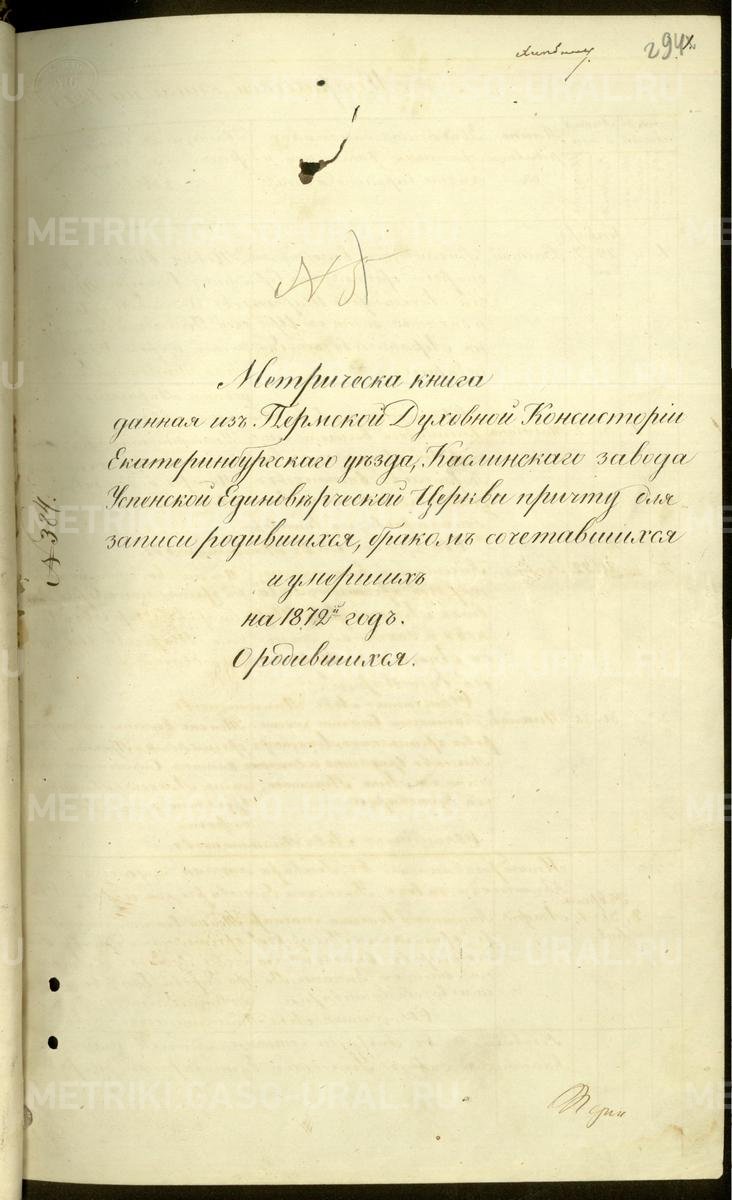 294
№ 5
Метрическа книга
данная изъ Пермской Духовной Консисторіи
Екатеринбургскаго уѣзда, Каслинскаго завода
Успенской Единовѣрческой Церкви причту для
записи родившихся, бракомъ сочетавшихся
и умершихъ
на 1872й годъ.
О родившихся.
№ 384.
METRIKI.GASO-URAL.RU